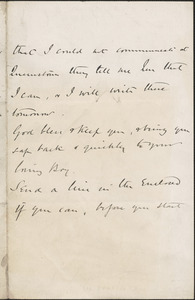 that I could not communicate at
Queenstown they tell me here that
I can, & I will write there
tomorrow.
God bless & keep you, & bring you
safe back & quickly to your
loving Boy
Send a line in the Enclosed
if you can, before you start